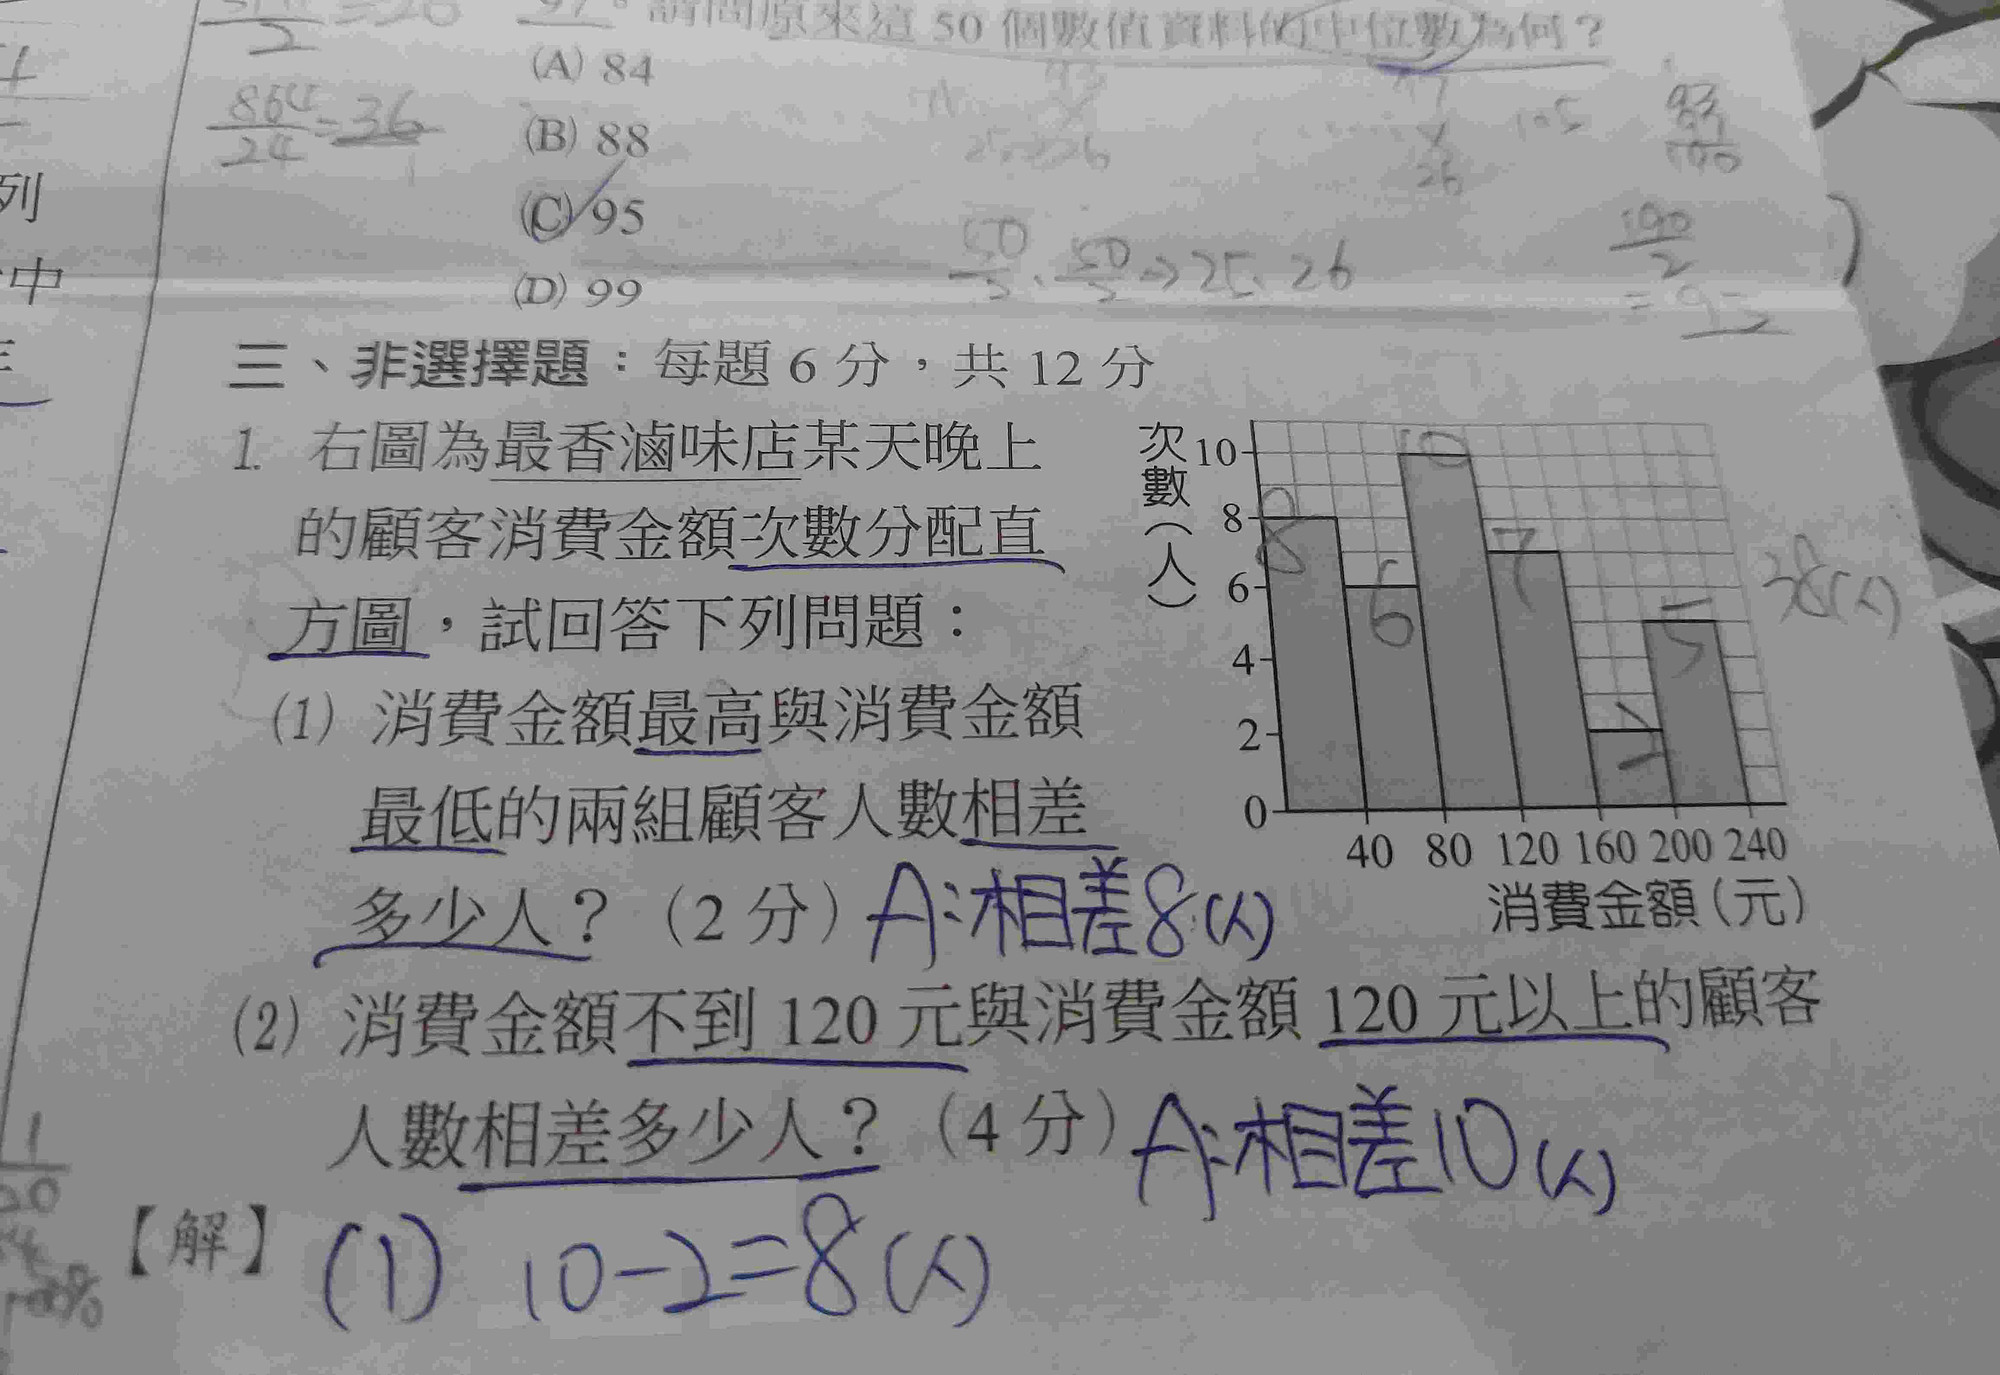 請問原來這 50 個數值資料的中位數為何？
(A) 84
864
24
=36
(B) 88
(C) 95
(D) 99
50
2
50
2
→25. 26
190
2
列
中
三、非選擇題：每題 6 分，共 12 分
1. 右圖為最香滷味店某天晚上
的顧客消費金額次數分配直
方圖，試回答下列問題：
(1) 消費金額最高與消費金額
最低的兩組顧客人數相差
多少人？（2 分）A:相差8(人)
次數（人）
10
8
6
4
2
0
8
6
10
7
2
5
38(人)
40 80 120 160 200 240
消費金額(元)
(2) 消費金額不到 120 元與消費金額 120 元以上的顧客
人數相差多少人？（4 分）A:相差10(人)
【解】(1) 10-2=8(人)